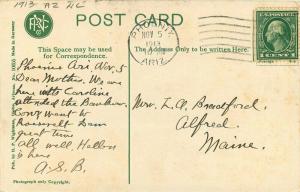 1913 AZ
POST CARD
This Space may be Used for Correspondence.
The Address Only to be Written Here
NOV 5
1913
ARIZ.
Phoenix Ari, Nov, 5
Dear Mother. We are
here with Caroline
attended the Bankers
Con, went to
Roosevelt Dam
great time
all well,
is here
A.S.B.
Mrs. E. A. Bradford,
Alfred,
Maine.
Photograph only Copyright.